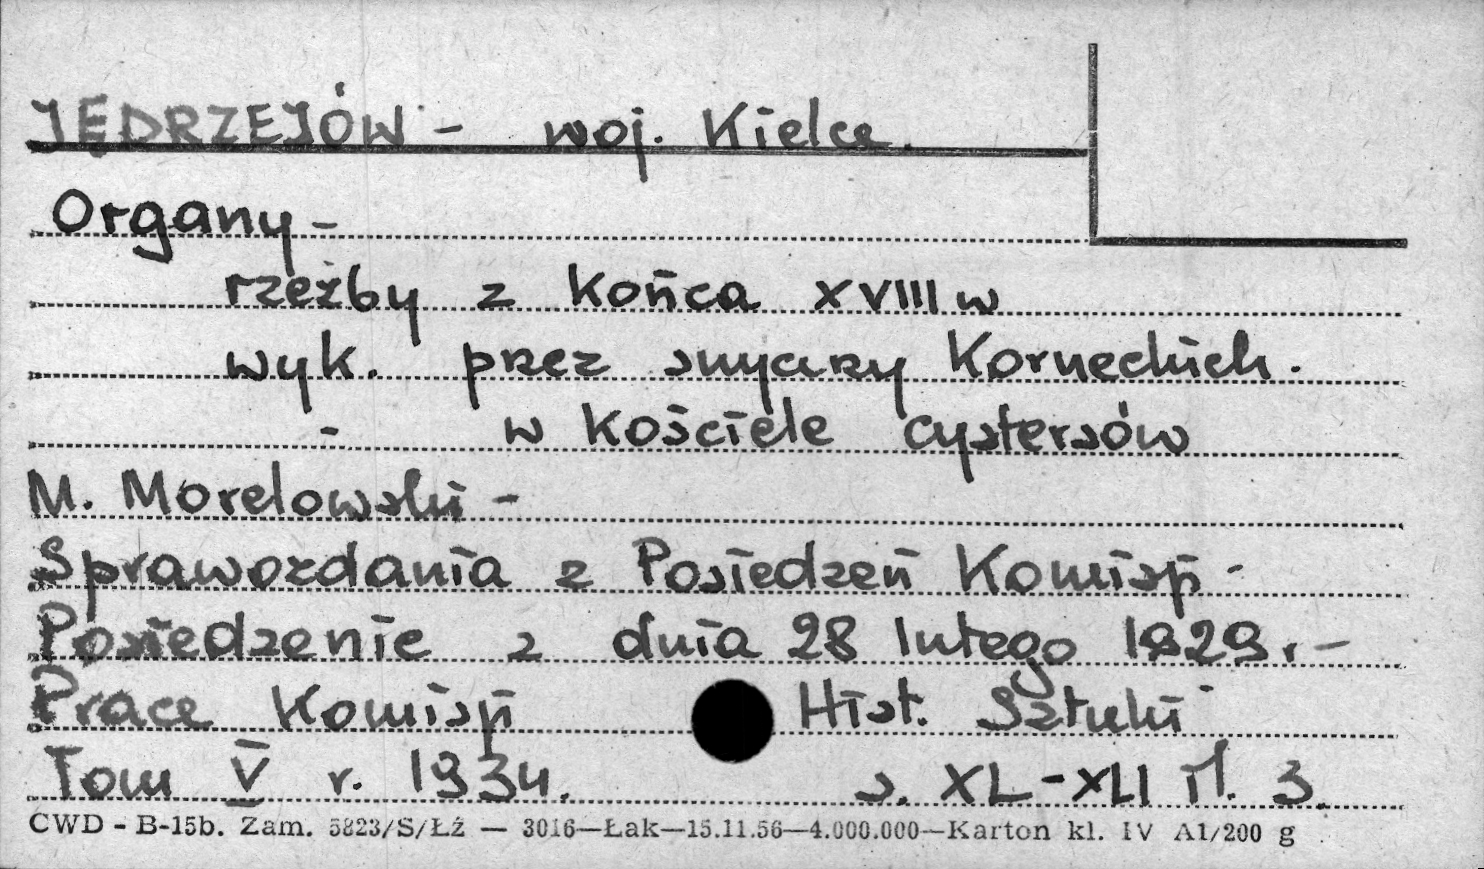 JĘDRZEJÓW - woj. Kielce.
Organy -
rzeźby z końca XVIII w
wyk. przez snycerzy Korneckich.
- w kościele cystersów
M. Morelowski -
Sprawozdania z Posiedzeń Komisji -
Posiedzenie z dnia 28 lutego 1929 r. -
Prace Komisji Hist. Sztuki
Tom V r. 1934. s. XL-XLI il. 3.
CWD - B-15b. Zam. 5823/S/Łź — 3016—Łak—15.11.56—4.000.000—Karton kl. IV A1/200 g